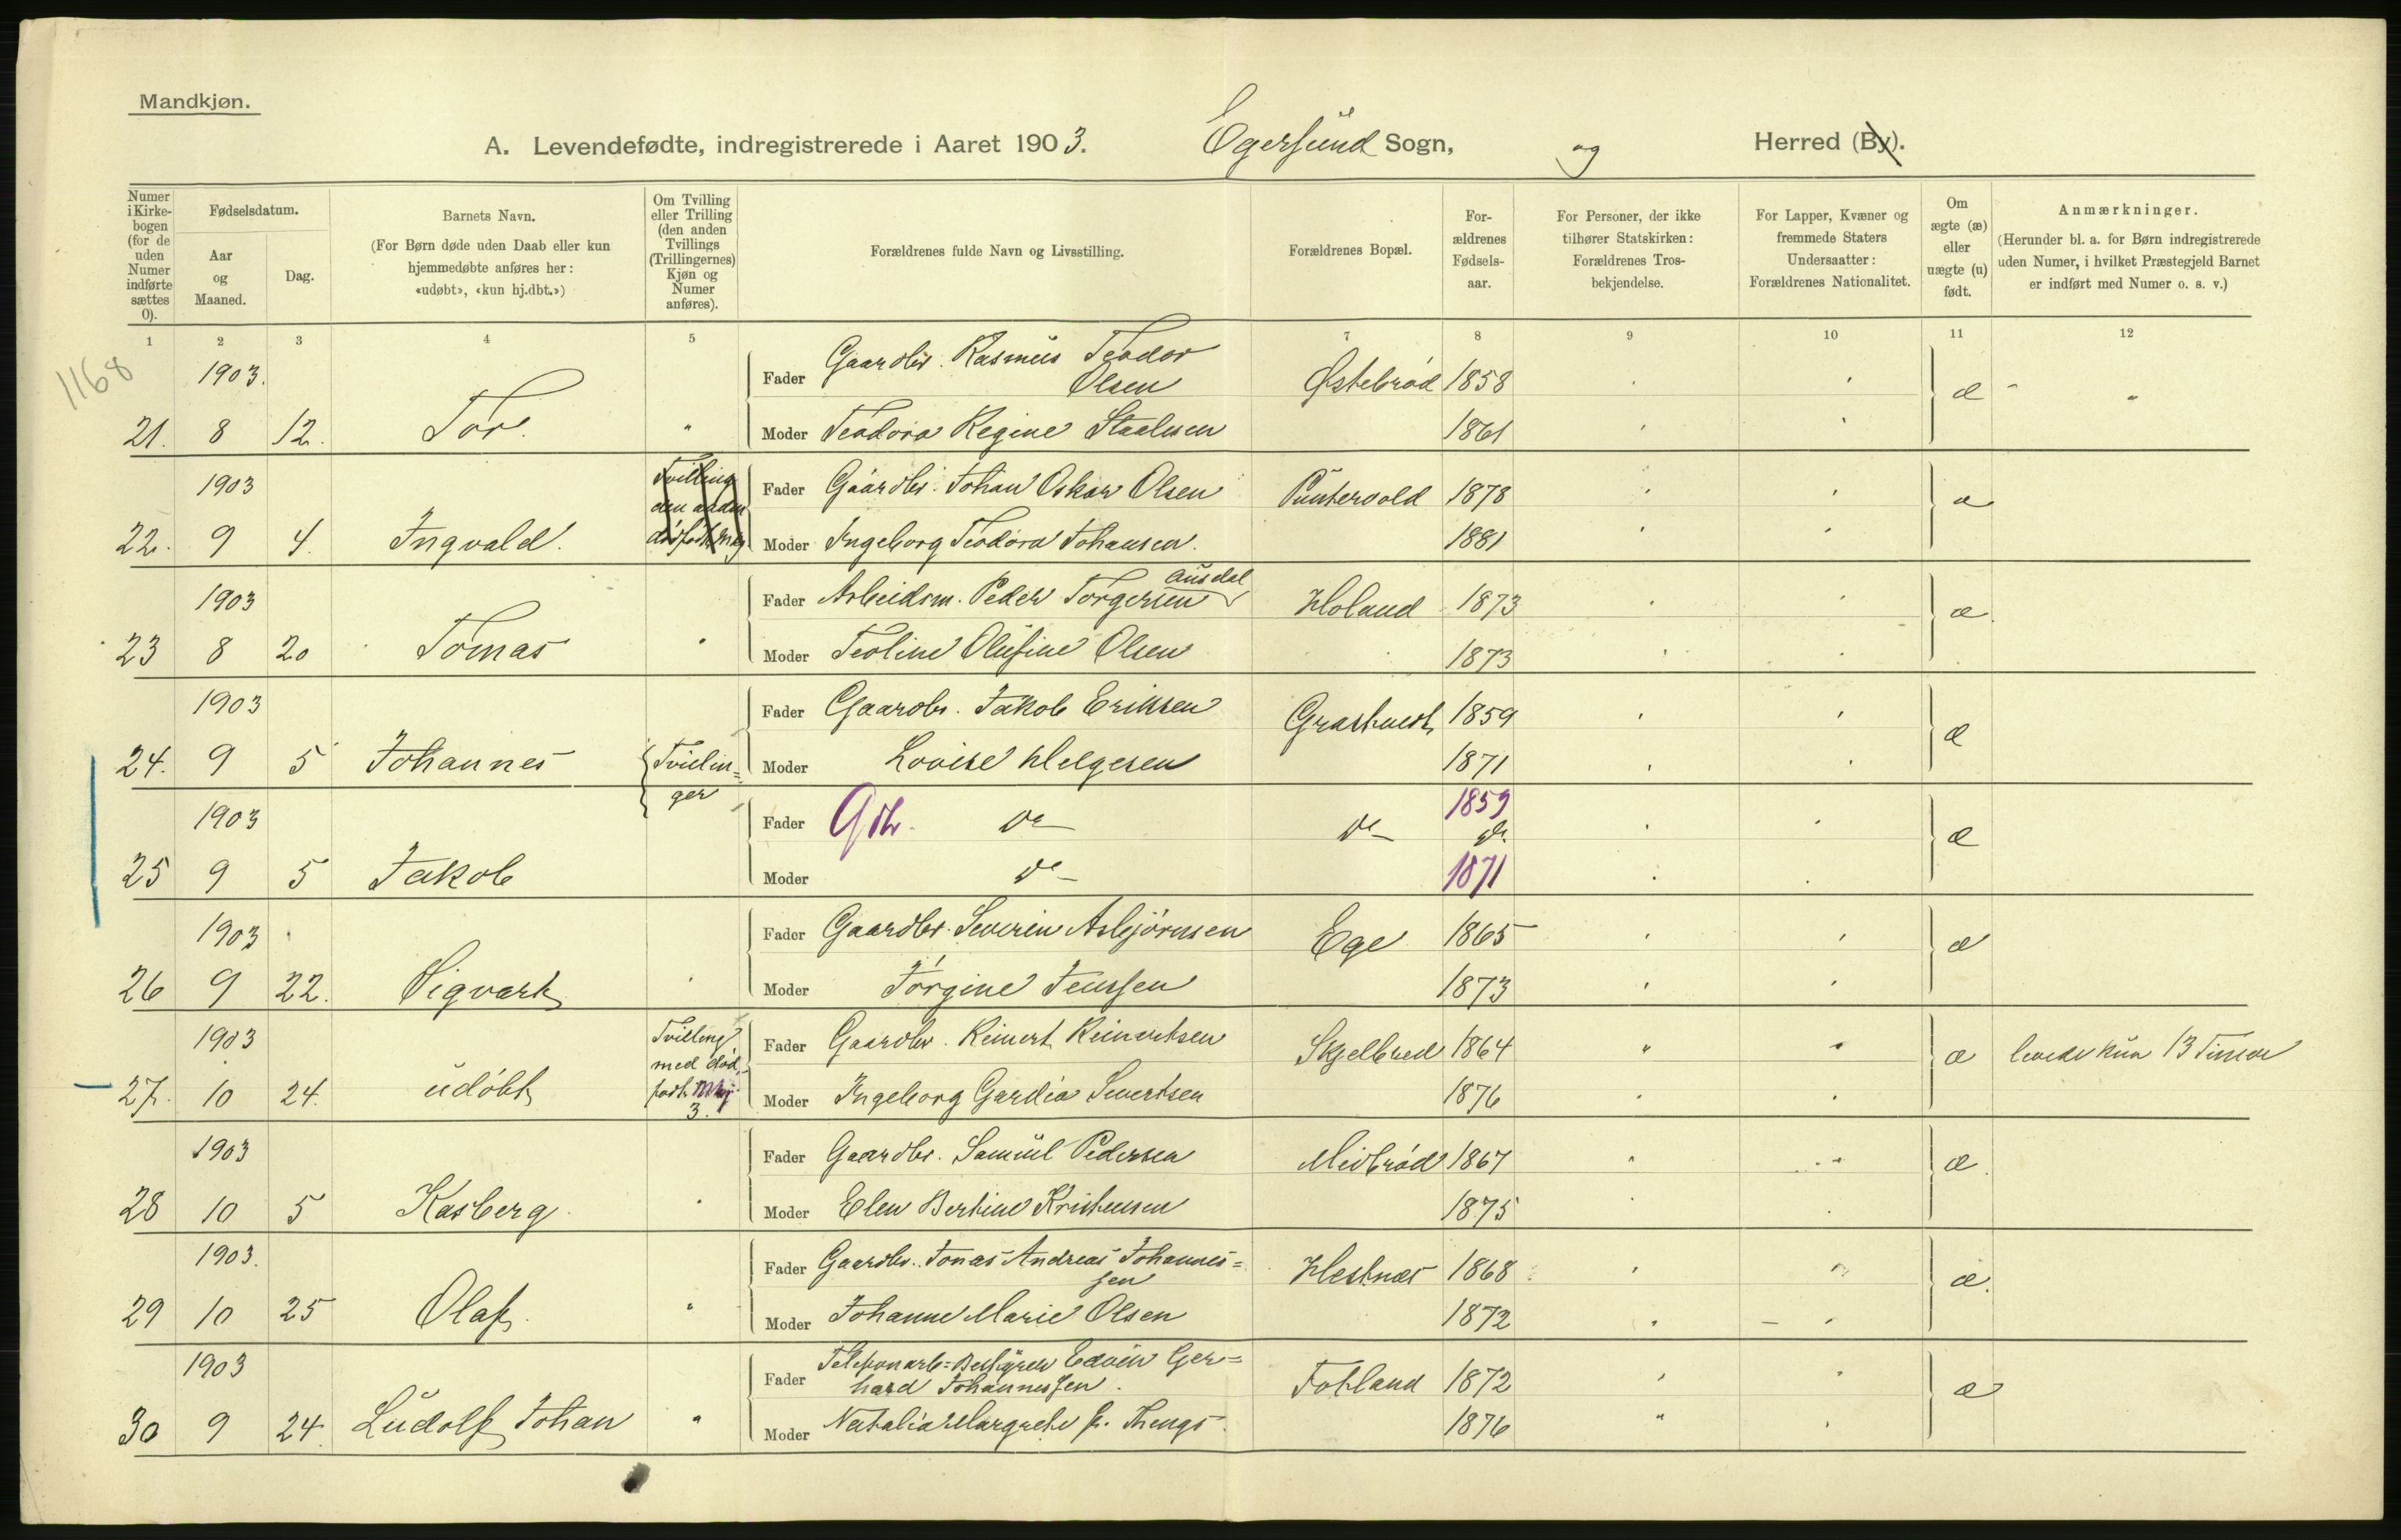 Mandkjøn.
A. Levendefødte, indregistrerede i Aaret 1903. Egersund Sogn, og Herred (By).
Numer i Kirkebogen (for de uden Numer indførte sættes 0).
Fødselsdatum.
Aar og Maaned.
Dag.
Barnets Navn.
(For Børn døde uden Daab eller kun hjemmedøbte anføres her: «udøbt», «kun hj.dbt.»)
Om Tvilling eller Trilling (den anden Tvillings (Trillingernes) Kjøn og Numer anføres).
Forældrenes fulde Navn og Livsstilling.
Forældrenes Bopæl.
Forældrenes Fødselsaar.
For Personer, der ikke tilhører Statskirken: Forældrenes Trosbekjendelse.
For Lapper, Kvæner og fremmede Staters Undersaatter: Forældrenes Nationalitet.
Om ægte (æ) eller uægte (u) født.
Anmærkninger.
(Herunder bl. a. for Børn indregistrerede uden Numer, i hvilket Præstegjeld Barnet er indført med Numer o. s. v.)
1 2 3 4 5 7 8 9 10 11 12
1168
1903. Fader Gaardbr. Rasmus Teodor Olsen Østebrød 1858 æ
21. 8 12. Tor. " Moder Teodora Regine Staalesen 1861
1903 Tvilling den anden dødfødt Fader Gaardbr. Johan Oskar Olsen Puntervold 1878 æ
22. 9 4. Ingvald. Moder Ingeborg Teodora Johansen. 1881
1903 Fader Arbeidsm. Peder Torgersen Ausdal Holand 1873 æ.
23 8 20 Tomas Moder Teoline Olufine Olsen 1873
1903 Fader Gaardbr. Jakob Eriksen 1859 æ
24. 9 5 Johannes Tvillinger Moder Lovise Helgesen 1871
1903 Fader Gbr. do do 1859 do æ
25 9 5 Jakob Moder do 1871
1903 Fader Gaardbr. Severin Asbjørnsen Ege 1865 æ
26 9 22. Sigvart Moder Jørgine Jenssen 1873
1903 Tvilling med dødfødt Mkj 3. Fader Gaardbr. Reinert Reinertsen Skjelbred 1864 æ levede kun 13 Timer
27. 10 24. udøbt Moder Ingeborg Gardia Sivertsen 1876
1903 Fader Gaardbr. Samuel Pedersen Meibrød 1867 æ.
28 10 5 Kasberg Moder Elen Bertine Kristensen 1875
1903. Fader Gaardbr. Jonas Andreas Johannessen Hestnes 1868 æ.
29 10 25 Olaf. " Moder Johanne Marie Olsen 1872
1903 Fader Telefonarb.= Edvin Gerhard Johannessen. Fotland 1872 æ
30 9 24. Ludolf Johan " Moder Natalia Margrete f. Thengs. 1876